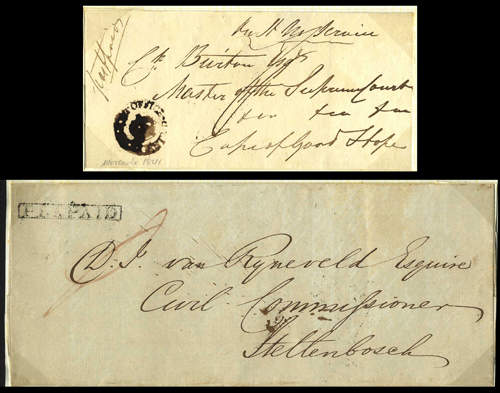 On H M Service
Ch Burton Esqr
Master of the Supreme Court
Cape of Good Hope
November 1841
PREPAID
D. J. van Ryneveld Esquire
Civil Commissioner
Stellenbosch